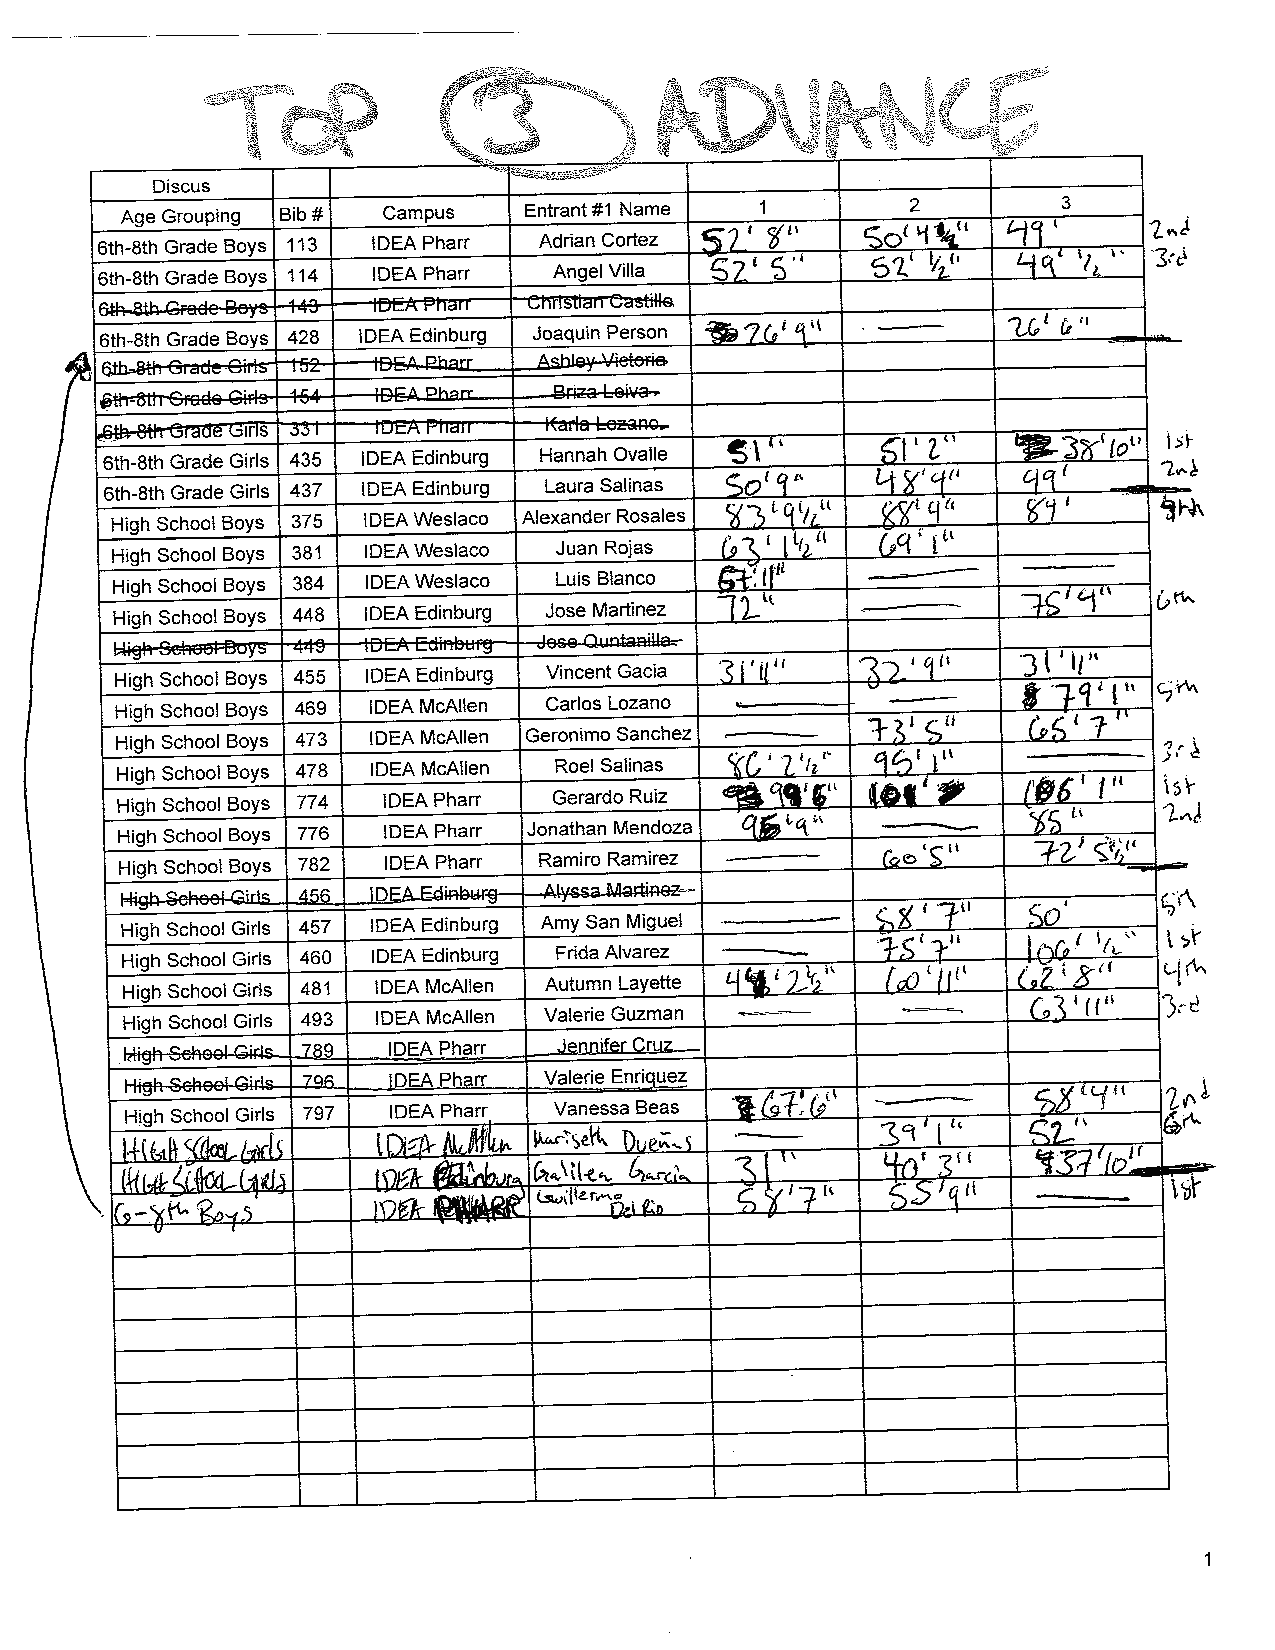 TOP 3 ADVANCE
Discus
Age Grouping Bib # Campus Entrant #1 Name 1 2 3
6th-8th Grade Boys 113 IDEA Pharr Adrian Cortez 52' 8" 50' 4½" 49' 2nd
6th-8th Grade Boys 114 IDEA Pharr Angel Villa 52' 5" 52' ½" 49' ½" 3rd
6th-8th Grade Boys 143 IDEA Pharr Christian Castillo
6th-8th Grade Boys 428 IDEA Edinburg Joaquin Person 26' 9" — 26' 6"
6th-8th Grade Girls 152 IDEA Pharr Ashley Victoria
6th-8th Grade Girls 154 IDEA Pharr Briza Leiva
6th-8th Grade Girls 331 IDEA Pharr Karla Lozano
6th-8th Grade Girls 435 IDEA Edinburg Hannah Ovalle 51" 51' 2" 38' 10" 1st
6th-8th Grade Girls 437 IDEA Edinburg Laura Salinas 50' 9" 48' 9" 49' 2nd
High School Boys 375 IDEA Weslaco Alexander Rosales 83' 9½" 88' 9" 89' 4th
High School Boys 381 IDEA Weslaco Juan Rojas 63' 1½" 69' 1"
High School Boys 384 IDEA Weslaco Luis Blanco 67' 11" — —
High School Boys 448 IDEA Edinburg Jose Martinez 72" — 75' 9" 6th
High School Boys 449 IDEA Edinburg Jose Quntanilla
High School Boys 455 IDEA Edinburg Vincent Gacia 31' 11" 32' 9" 31' 11"
High School Boys 469 IDEA McAllen Carlos Lozano — — 79' 1" 5th
High School Boys 473 IDEA McAllen Geronimo Sanchez — 73' 5" 65' 7"
High School Boys 478 IDEA McAllen Roel Salinas 86' 2½" 95' 1" — 3rd
High School Boys 774 IDEA Pharr Gerardo Ruiz 99' 6" 101' 106' 1" 1st
High School Boys 776 IDEA Pharr Jonathan Mendoza 95' 9" — 85" 2nd
High School Boys 782 IDEA Pharr Ramiro Ramirez — 60' 5" 72' 5½"
High School Girls 456 IDEA Edinburg Alyssa Martinez
High School Girls 457 IDEA Edinburg Amy San Miguel — 58' 7" 50' 5th
High School Girls 460 IDEA Edinburg Frida Alvarez — 75' 7" 106' ½" 1st
High School Girls 481 IDEA McAllen Autumn Layette 2½" 60' 11" 62' 8" 4th
High School Girls 493 IDEA McAllen Valerie Guzman — — 63' 11" 3rd
High School Girls 789 IDEA Pharr Jennifer Cruz
High School Girls 796 IDEA Pharr Valerie Enriquez
High School Girls 797 IDEA Pharr Vanessa Beas 67' 6" — 58' 4" 2nd
HIGH SCHOOL GIRLS IDEA McAllen Mariseth Dueñas — 39' 1" 52" 6th
HIGH SCHOOL GIRLS IDEA Edinburg Galilea Garcia 31" 40' 3" 37' 10"
6-8th Boys IDEA PHARR Guillermo Del Rio 58' 7" 55' 9" — 1st
1